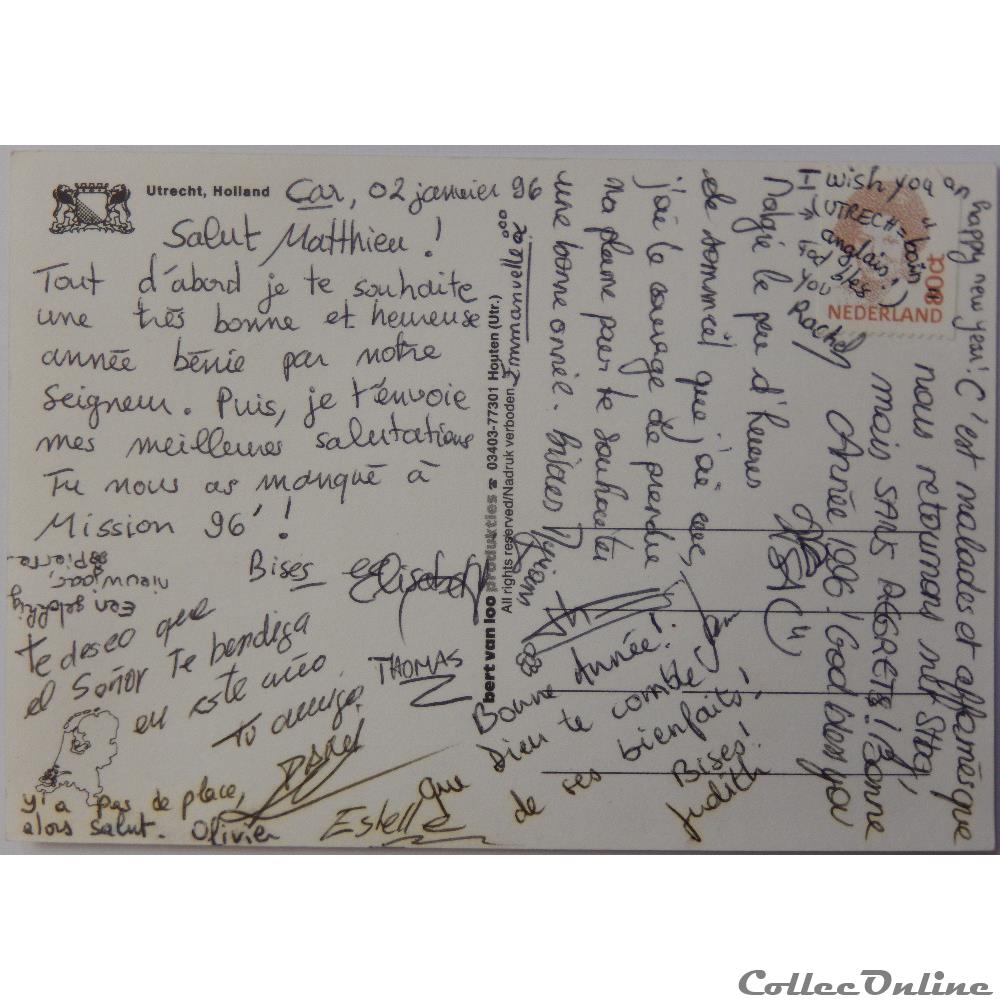 Utrecht, Holland
Car, 02 janvier 96
Salut Matthieu !
Tout d'abord je te souhaite
une très bonne et heureuse
année bénie par notre
Seigneur. Puis, je t'envoie
mes meilleures salutations
Tu nous as manqué à
Mission 96' !
Bises Elisabeth
Een gelukkig
nieuwjaar,
Pierre
te deseo que
el Señor te bendiga
en este año
Tu amiga.
THOMAS
y'a pas de place,
alors salut. Olivier
Estelle
bert van loo produkties ☎ 03403-77301 Houten (Utr.)
All rights reserved/Nadruk verboden
Immanuelle
Malgré le peu d'heures
de sommeil que j'ai eues,
j'ai le courage de prendre
ma plume pour te souhaiter
une bonne année. bises Myriam
Bonne Année!
que Dieu te comble
de ses bienfaits!
Bises!
Judith
I wish you an happy new year! C'est malades et affamés que
nous retournons sur Stbg,
mais SANS REGRETS! Bonne
Année 1996! God bless you
(UTRECH = bain
anglais!)
God bless
you
Rachel
NEDERLAND
80c
CollecOnline